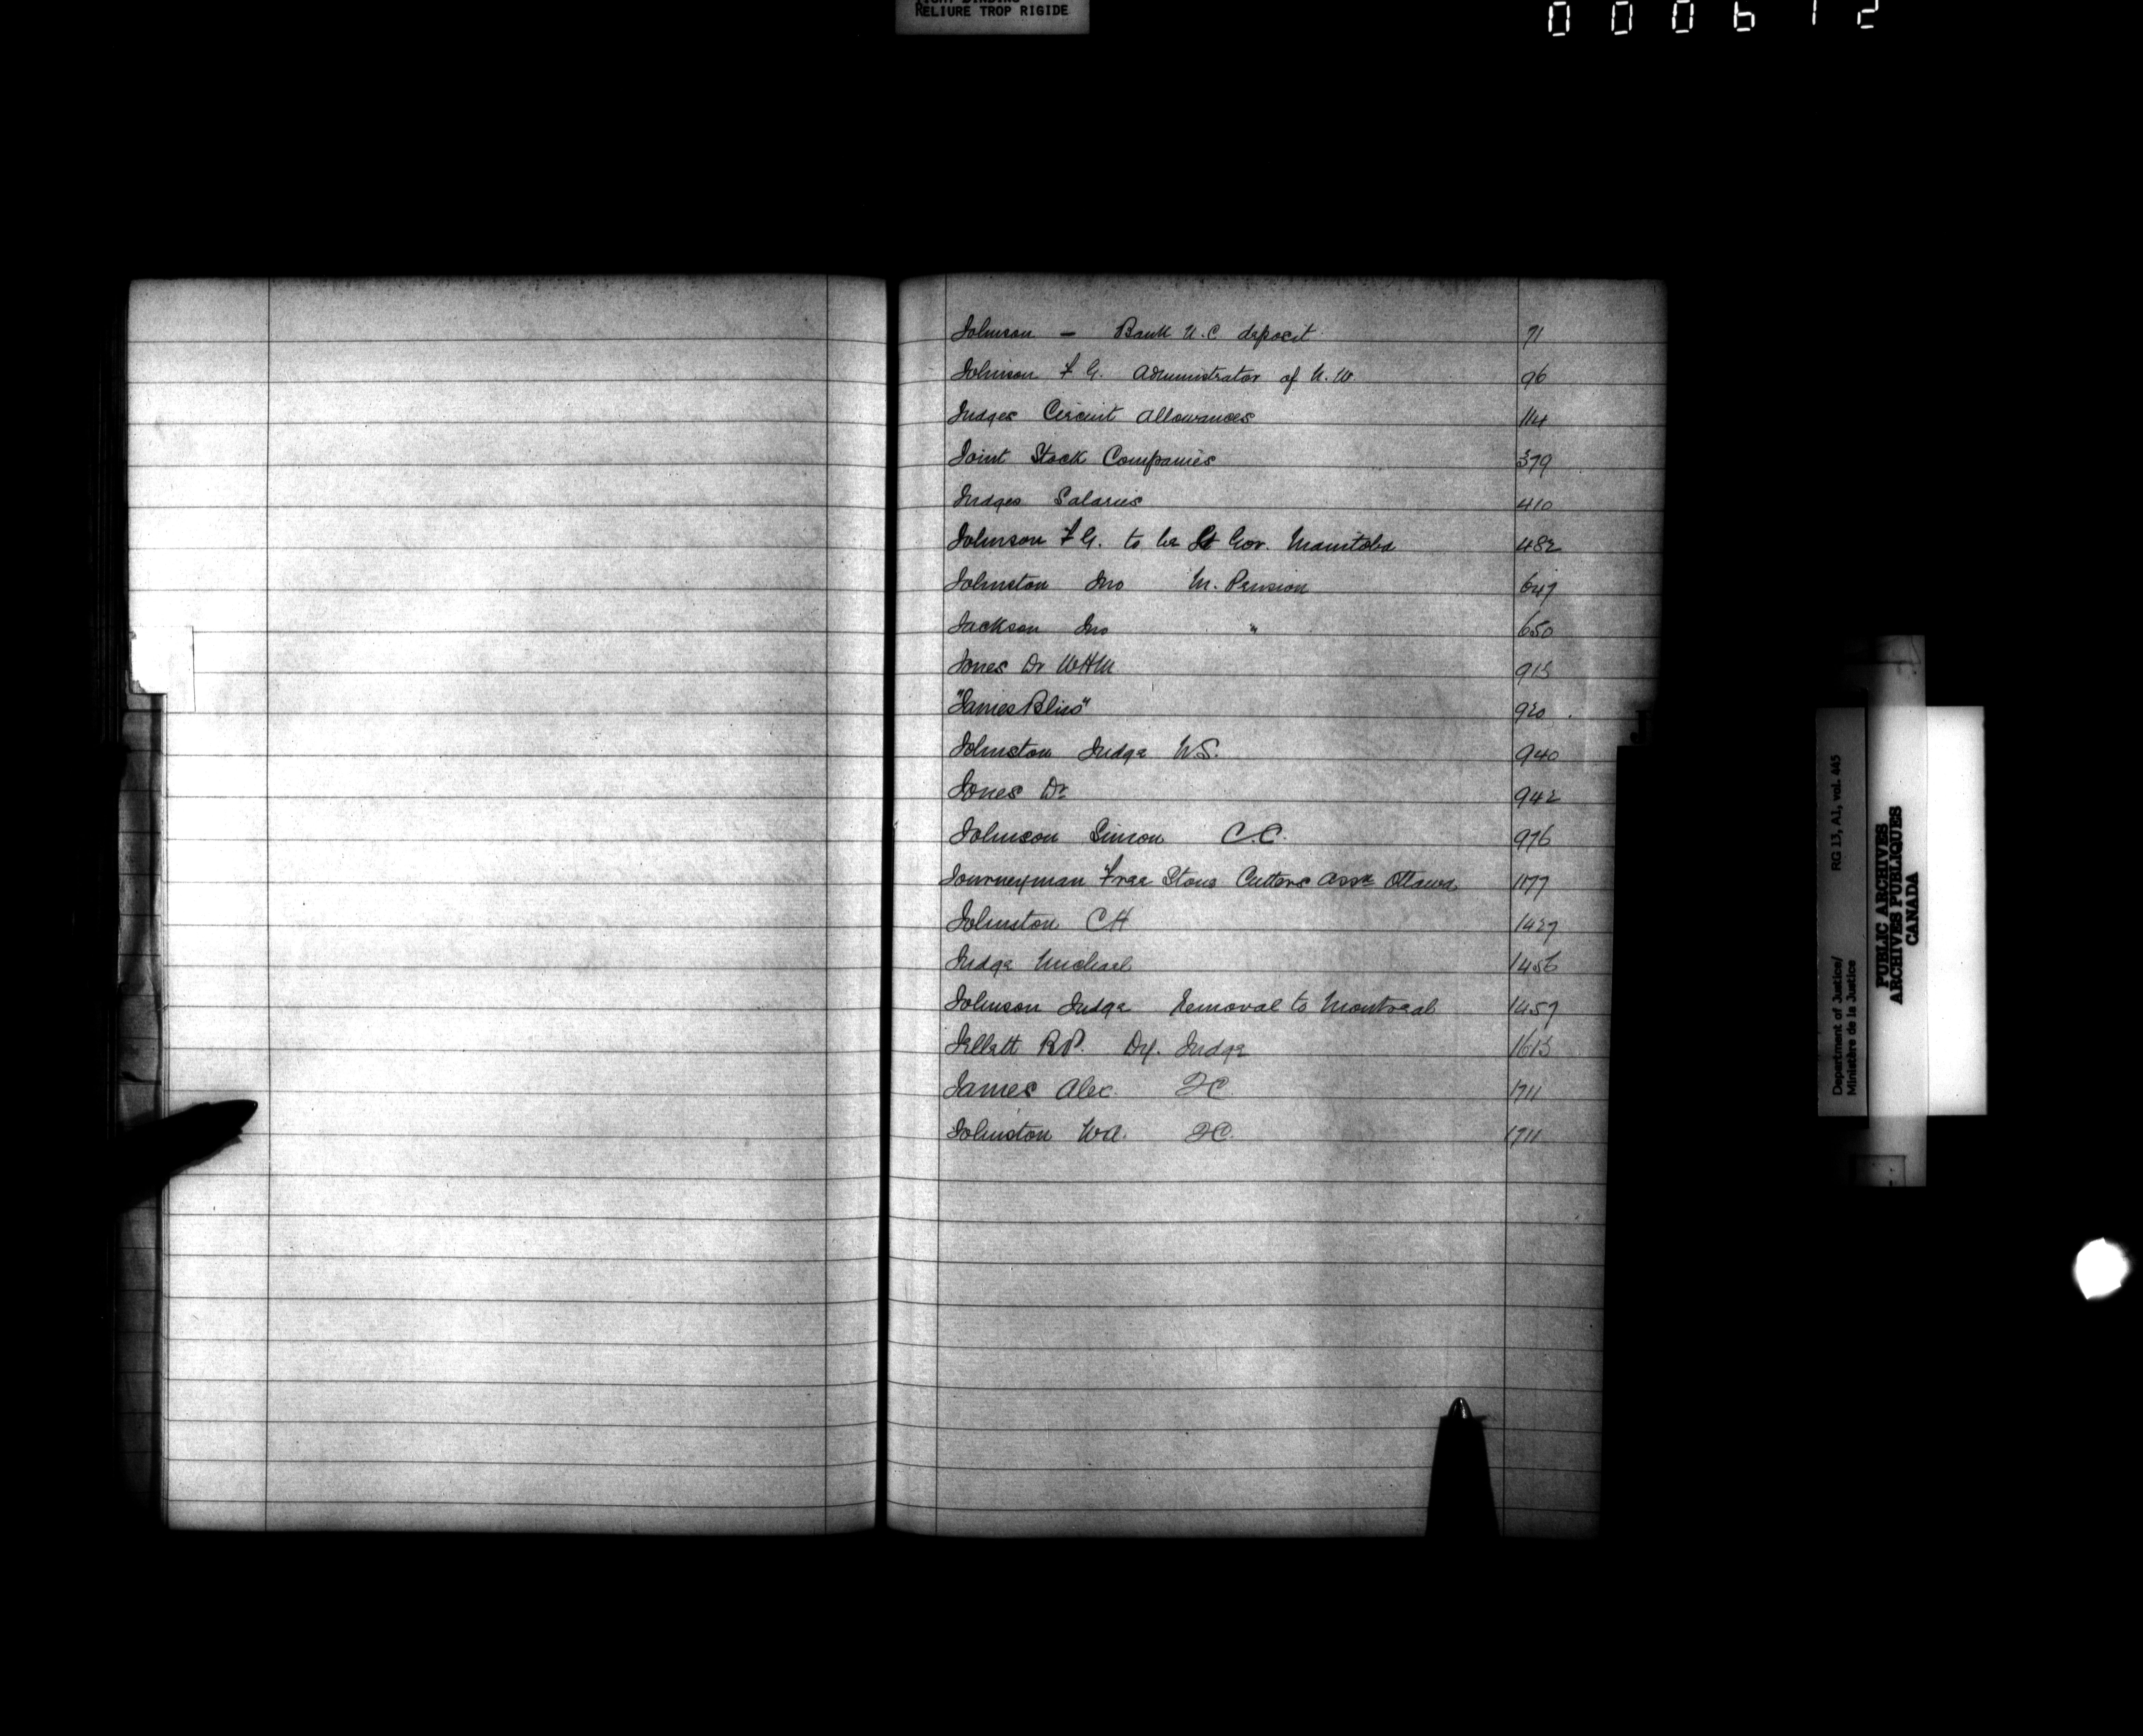 RELIURE TROP RIGIDE
000612
Johnson — Bank U.C. deposit 71
Johnson F G. Administrator of N.W 96
Judges Circuit Allowances 114
Joint Stock Companies 379
Judges Salaries 410
Johnson F G. to be Lt Gov. Manitoba 482
Johnston Jno M. Pension 647
Jackson Jno " 650
Jones Dr WHM 913
"James Bliss" 920
Johnston Judge WS. 940
Jones Dr 942
Johnson Simon C.C. 976
Journeyman Free Stone Cutters Assn Ottawa 1177
Johnston CH 1427
Judge Michael 1456
Johnson Judge Removal to Montreal 1457
Jellett RP. Dy. Judge 1613
James Alex. QC 1711
Johnston WA. QC. 1711
J
Department of Justice/ RG 13, A1, vol. 445
Ministère de la Justice
PUBLIC ARCHIVES
ARCHIVES PUBLIQUES
CANADA